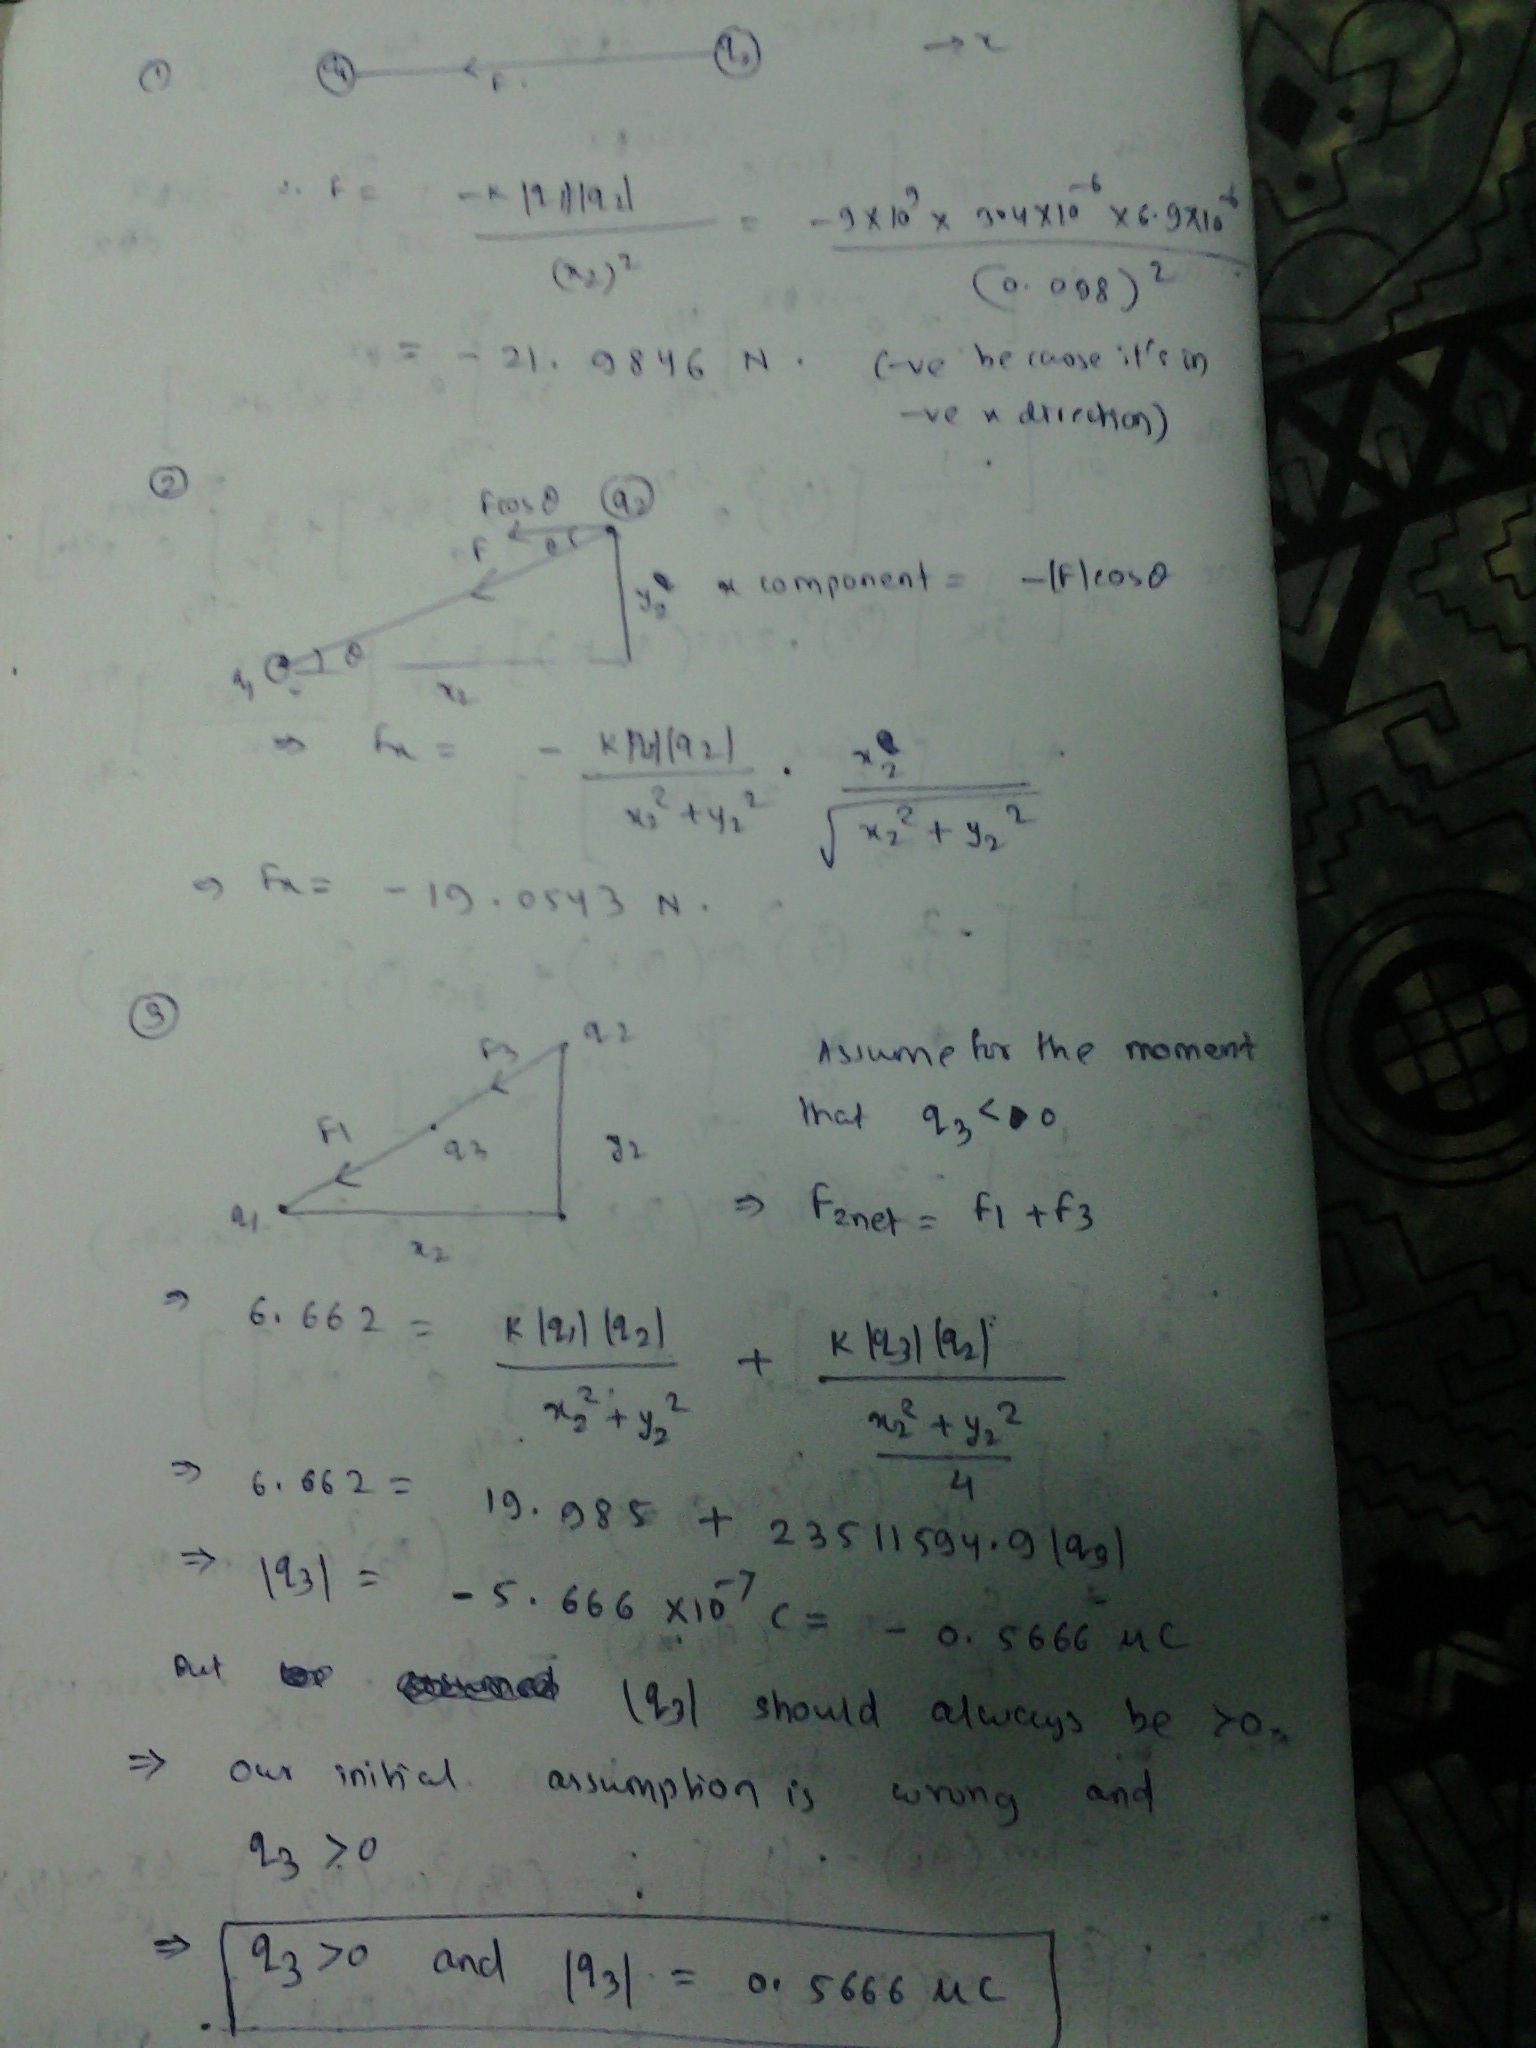 ①
q1 F. q2 → x
∴ F = -K |q1||q2| / (x2)² = -9×10⁹ × 3.4×10⁻⁶ × 6.9×10⁻⁶ / (0.098)²
= - 21.9846 N. (-ve because it's in
-ve x direction)
②
Fcosθ q2
F θ
y2 x component = -|F|cosθ
q1 θ
x2
⇒ Fx = - K|q1||q2| / x2² + y2² . x2 / √x2² + y2²
⇒ Fx = -19.0543 N.
③
F3 q2
Assume for the moment
that q3 < 0
F1 q3 y2
q1 ⇒ F2net = F1 + F3
x2
⇒ 6.662 = K|q1||q2| / x2² + y2² + K|q3||q2| / x2² + y2² / 4
⇒ 6.662 = 19.985 + 23511594.9|q3|
⇒ |q3| = -5.666 ×10⁻⁷ C = - 0.5666 μC
But |q3| should always be >0
⇒ our initial assumption is wrong and
q3 > 0
⇒ q3 >0 and |q3| = 0.5666 μC